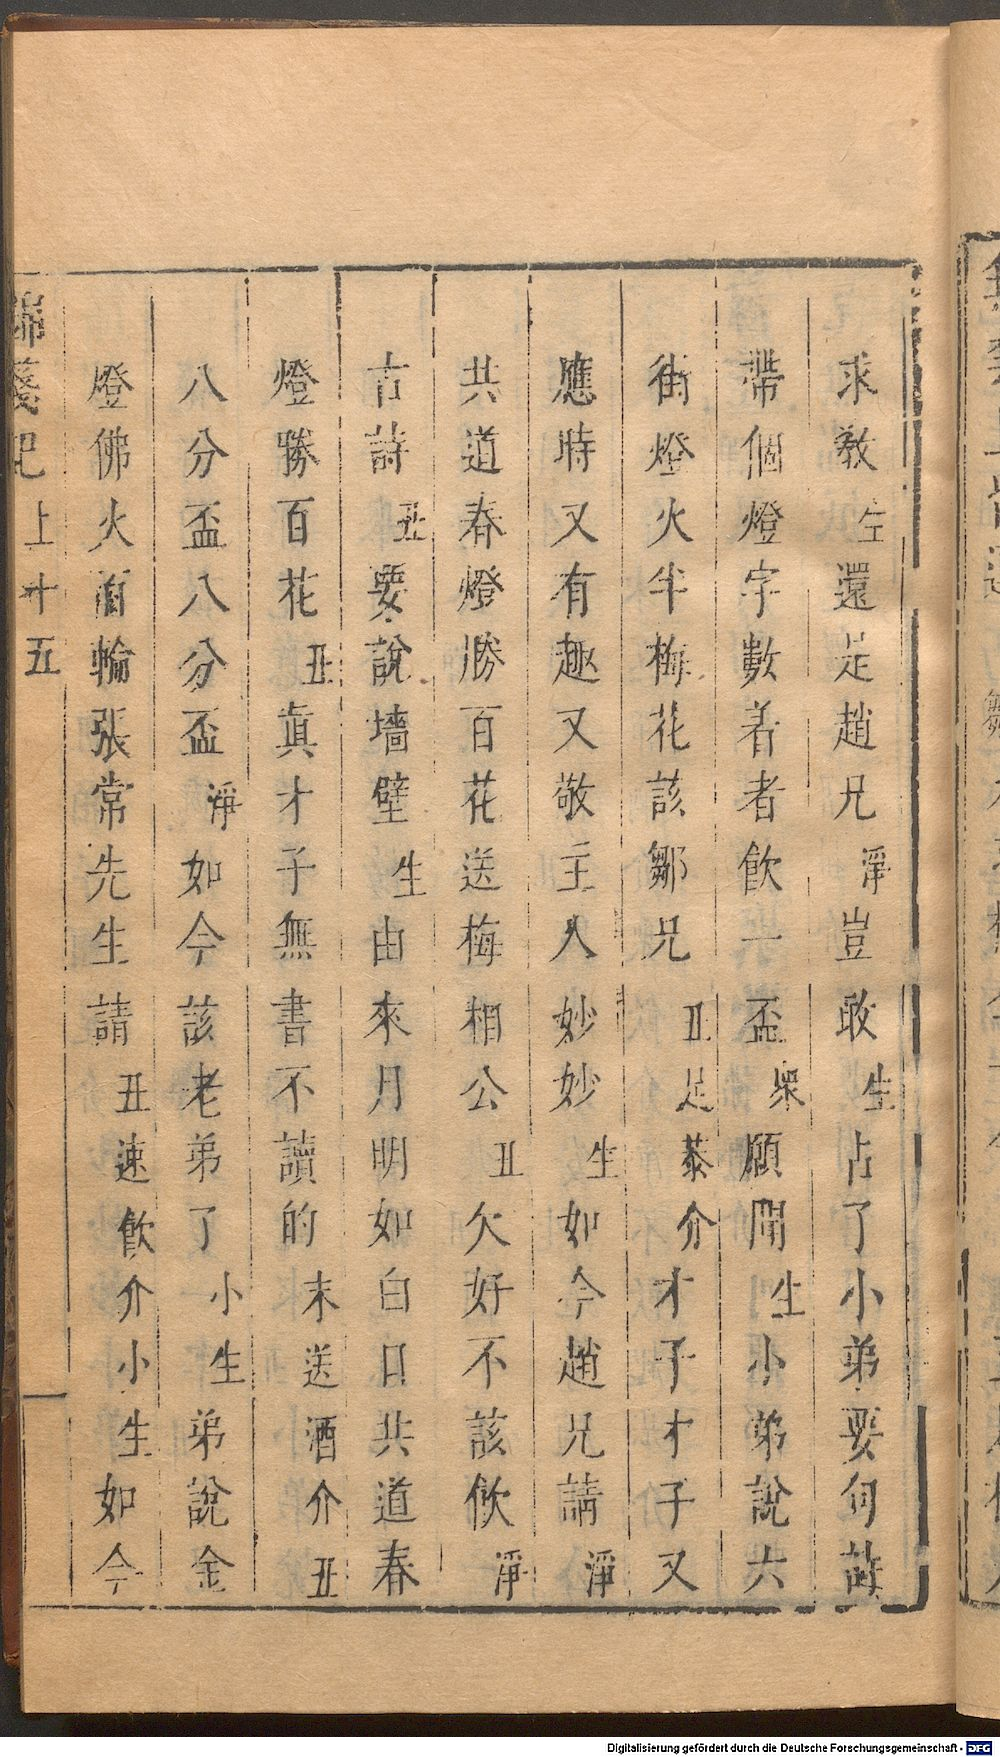 求教生還是趙兄淨豈敢生占了小弟要句詩
帶個燈字數着者飲一盃衆願聞生小弟說六
街燈火半梅花該鄒兄丑足恭介才子才子又
應時又有趣又敬主人妙妙生如今趙兄請淨
共道春燈勝百花送梅相公丑欠好不該飲淨
古詩丑要說墻壁生由來月明如白日共道春
燈勝百花丑真才子無書不讀的末送酒介丑
八分盃八分盃淨如今該老弟了小生弟說金
燈佛火百輪張常先生請丑速飲介小生如今
錦箋記上十五
Digitalisierung gefördert durch die Deutsche Forschungsgemeinschaft - DFG